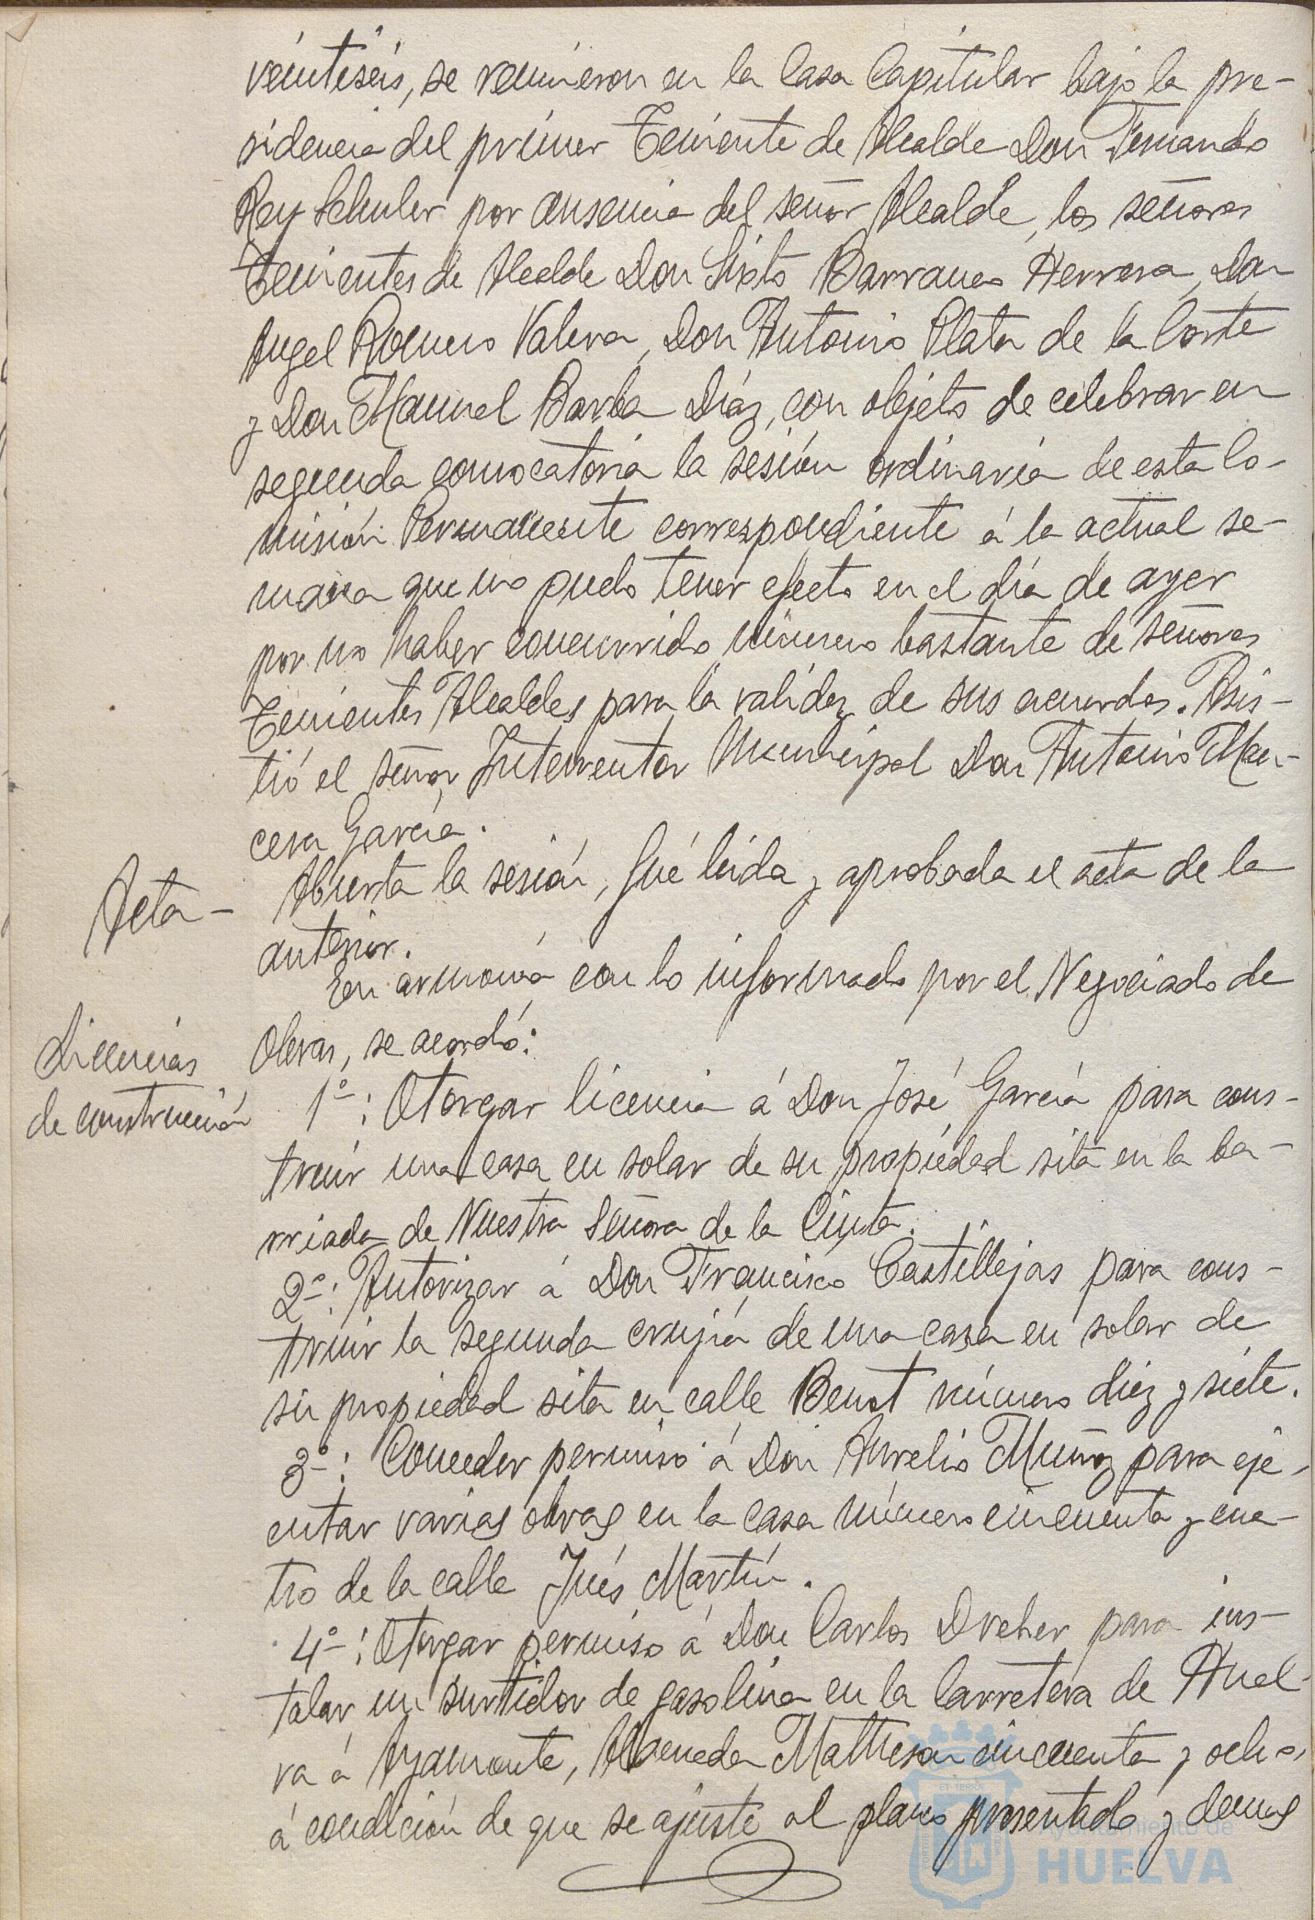 veintiséis, se reunieron en la Casa Capitular bajo la pre-
sidencia del primer Teniente de Alcalde Don Fernando
Rey Schuler por ausencia del señor Alcalde, los señores
Tenientes de Alcalde Don Sixto Barranco Herrera, Don
Angel Romero Valera, Don Antonio Plata de la Corte
y Don Manuel Barba Díaz, con objeto de celebrar en
segunda convocatoria la sesión ordinaria de esta Co-
misión Permanente correspondiente á la actual se-
mana que no pudo tener efecto en el día de ayer
por no haber concurrido número bastante de señores
Tenientes Alcaldes para la validez de sus acuerdos. Asis-
tió el señor Interventor Municipal Don Antonio Man-
cera García.
Acta - Abierta la sesión, fué leida y aprobada el acta de la
anterior.
En armonía con lo informado por el Negociado de
Licencias Obras, se acordó:
de construcción 1º: Otorgar licencia á Don José García para cons-
truir una casa en solar de su propiedad sita en la ba-
rriada de Nuestra Señora de la Cinta.
2º: Autorizar á Don Francisco Castillejas para cons-
truir la segunda crujía de una casa en solar de
su propiedad sita en calle Benot número diez y siete.
3º: Conceder permiso á Don Aurelio Muñoz para eje-
cutar varias obras en la casa número cincuenta y cua-
tro de la calle Inés Martín.
4º: Otorgar permiso á Don Carlos Dreher para ins-
talar un surtidor de gasolina en la Carretera de Huel-
va á Ayamonte, Alameda Mathesan cincuenta y ocho,
á condición de que se ajuste al plano presentado y demas
ET TERRÆ
Ayuntamiento de
HUELVA